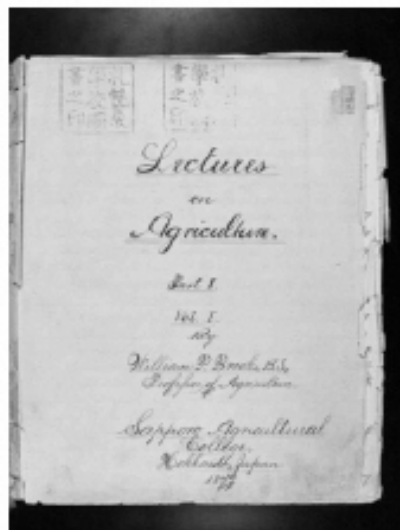 Lectures
on
Agriculture.
Part I.
Vol. I.
By
William P. Brooks, B.S.,
Professor of Agriculture
Sapporo Agricultural
College.
Hokkaido, Japan